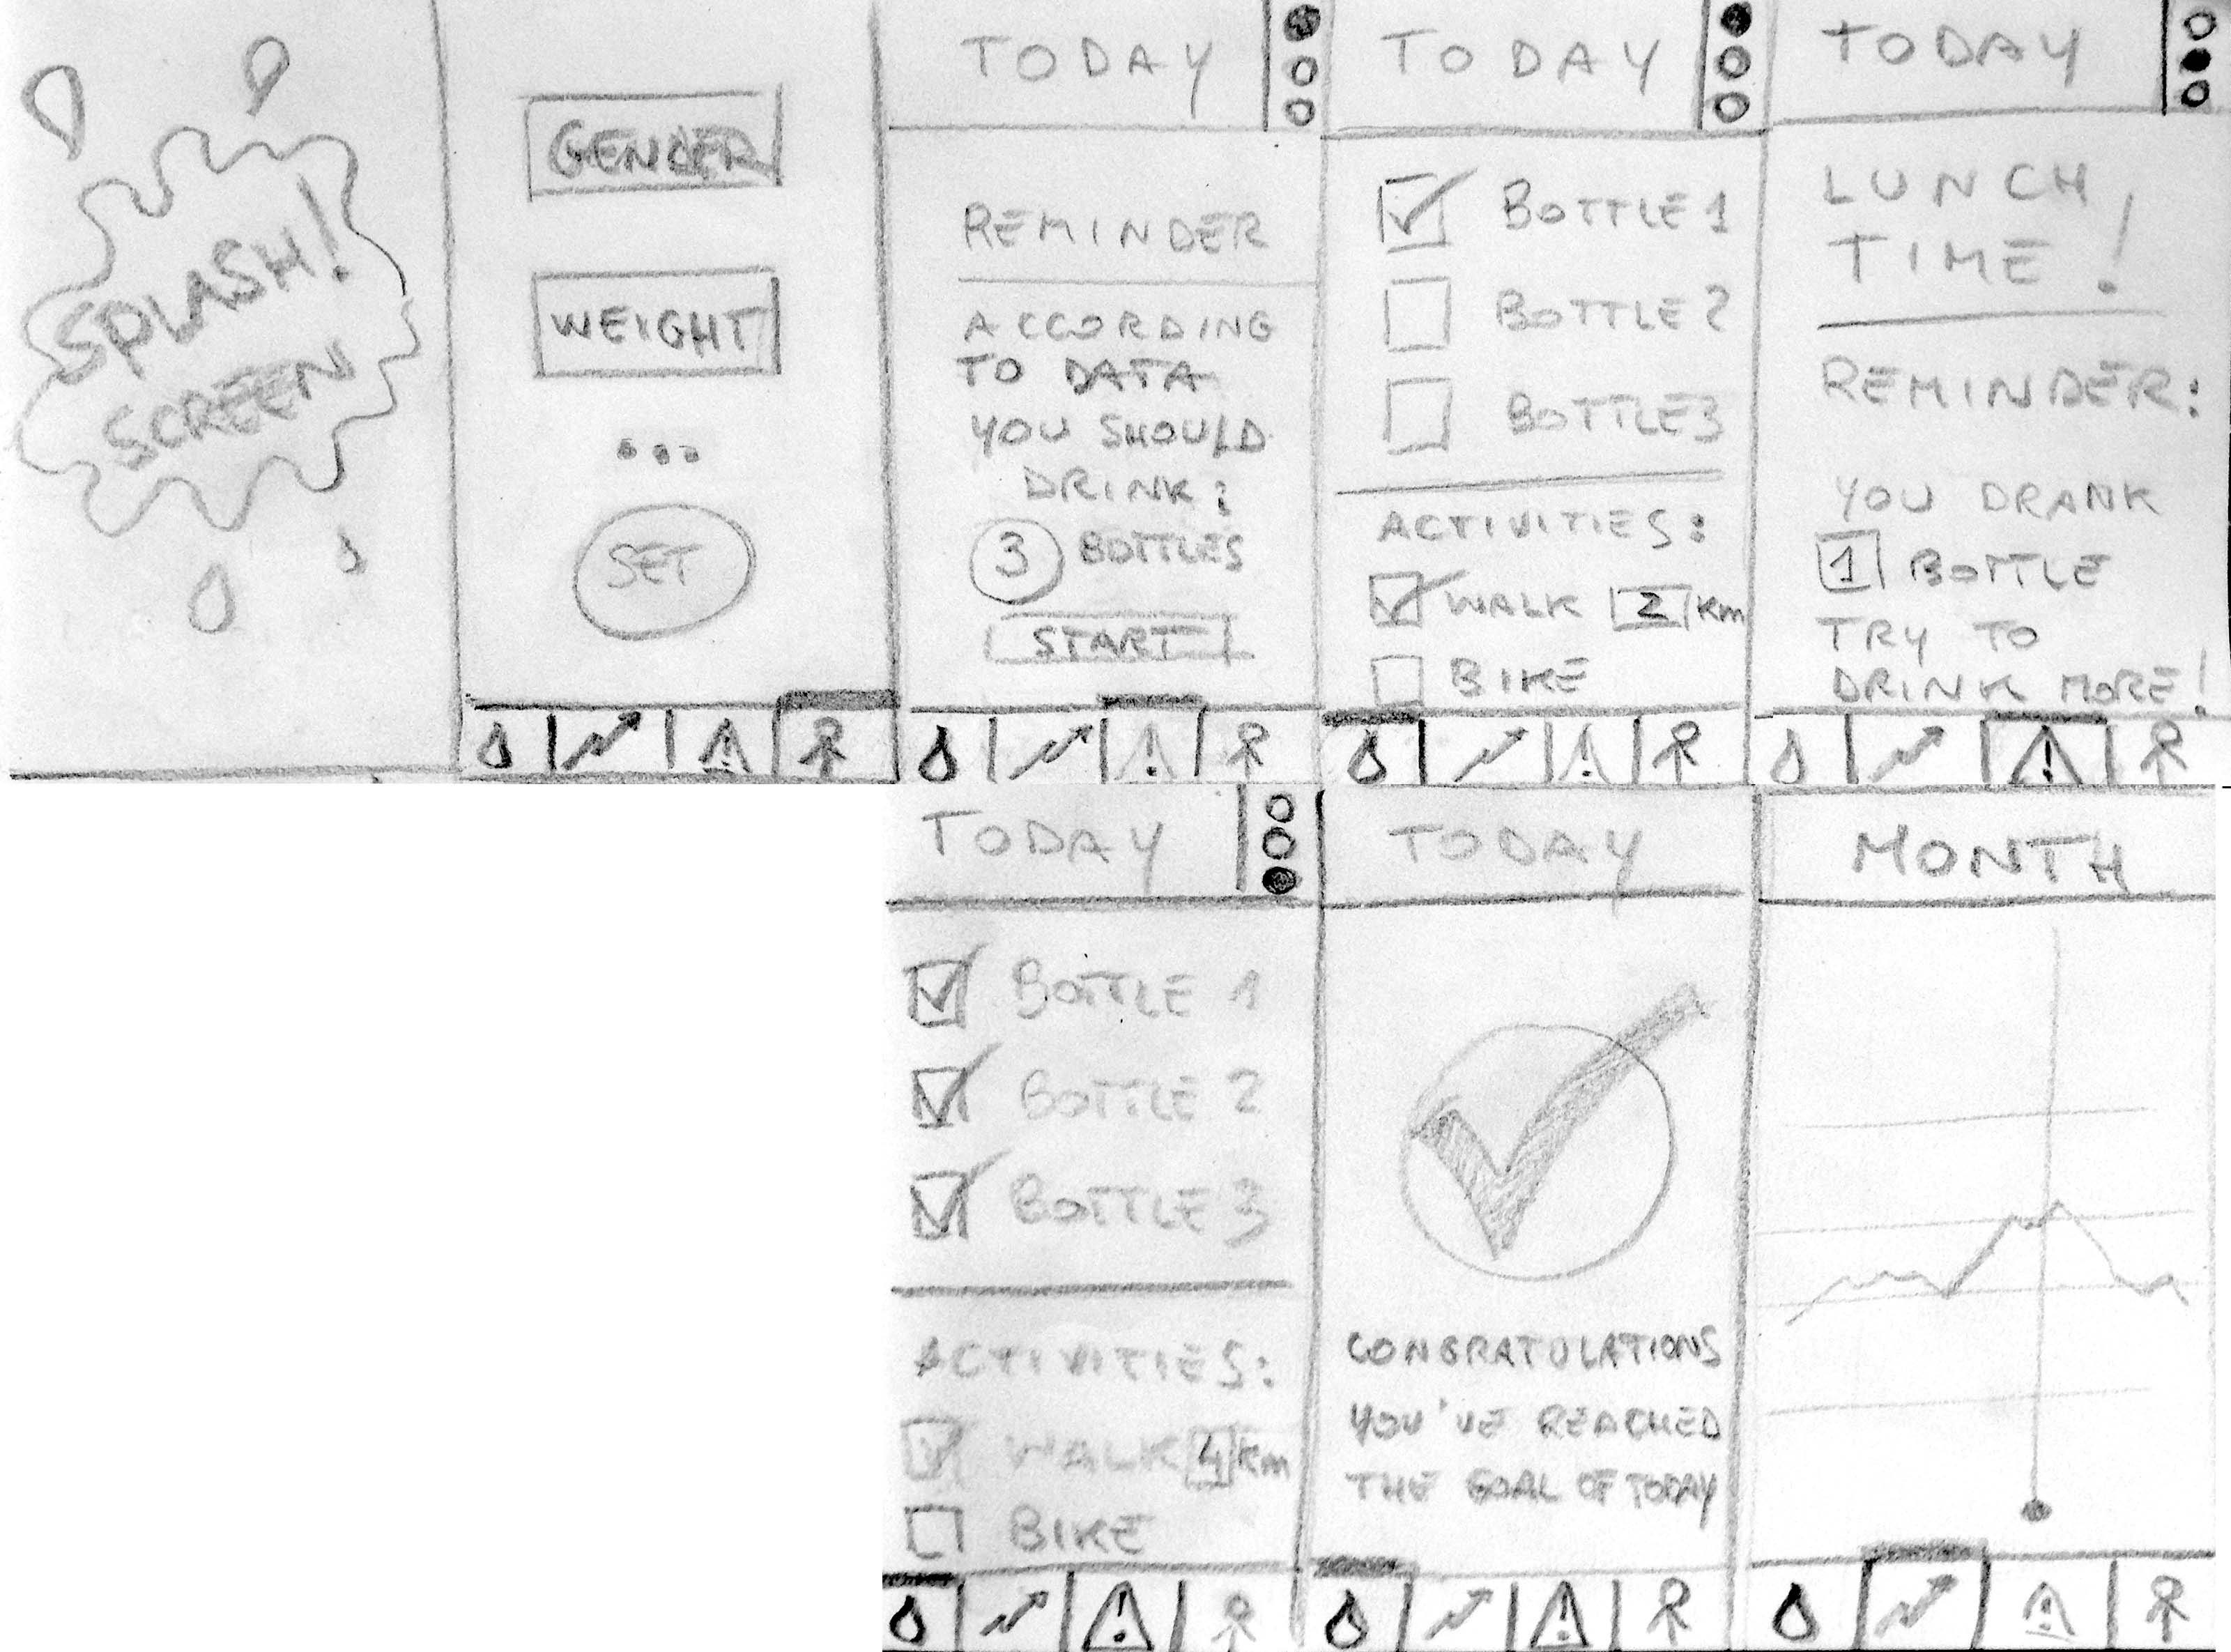 SPLASH!
SCREEN
GENDER
WEIGHT
...
SET
TODAY
REMINDER
ACCORDING
TO DATA
YOU SHOULD
DRINK:
3 BOTTLES
START
TODAY
BOTTLE 1
BOTTLE 2
BOTTLE 3
ACTIVITIES:
WALK 2 km
BIKE
TODAY
LUNCH
TIME!
REMINDER:
YOU DRANK
1 BOTTLE
TRY TO
DRINK MORE!
TODAY
BOTTLE 1
BOTTLE 2
BOTTLE 3
ACTIVITIES:
WALK 4 km
BIKE
TODAY
CONGRATULATIONS
YOU'VE REACHED
THE GOAL OF TODAY
MONTH